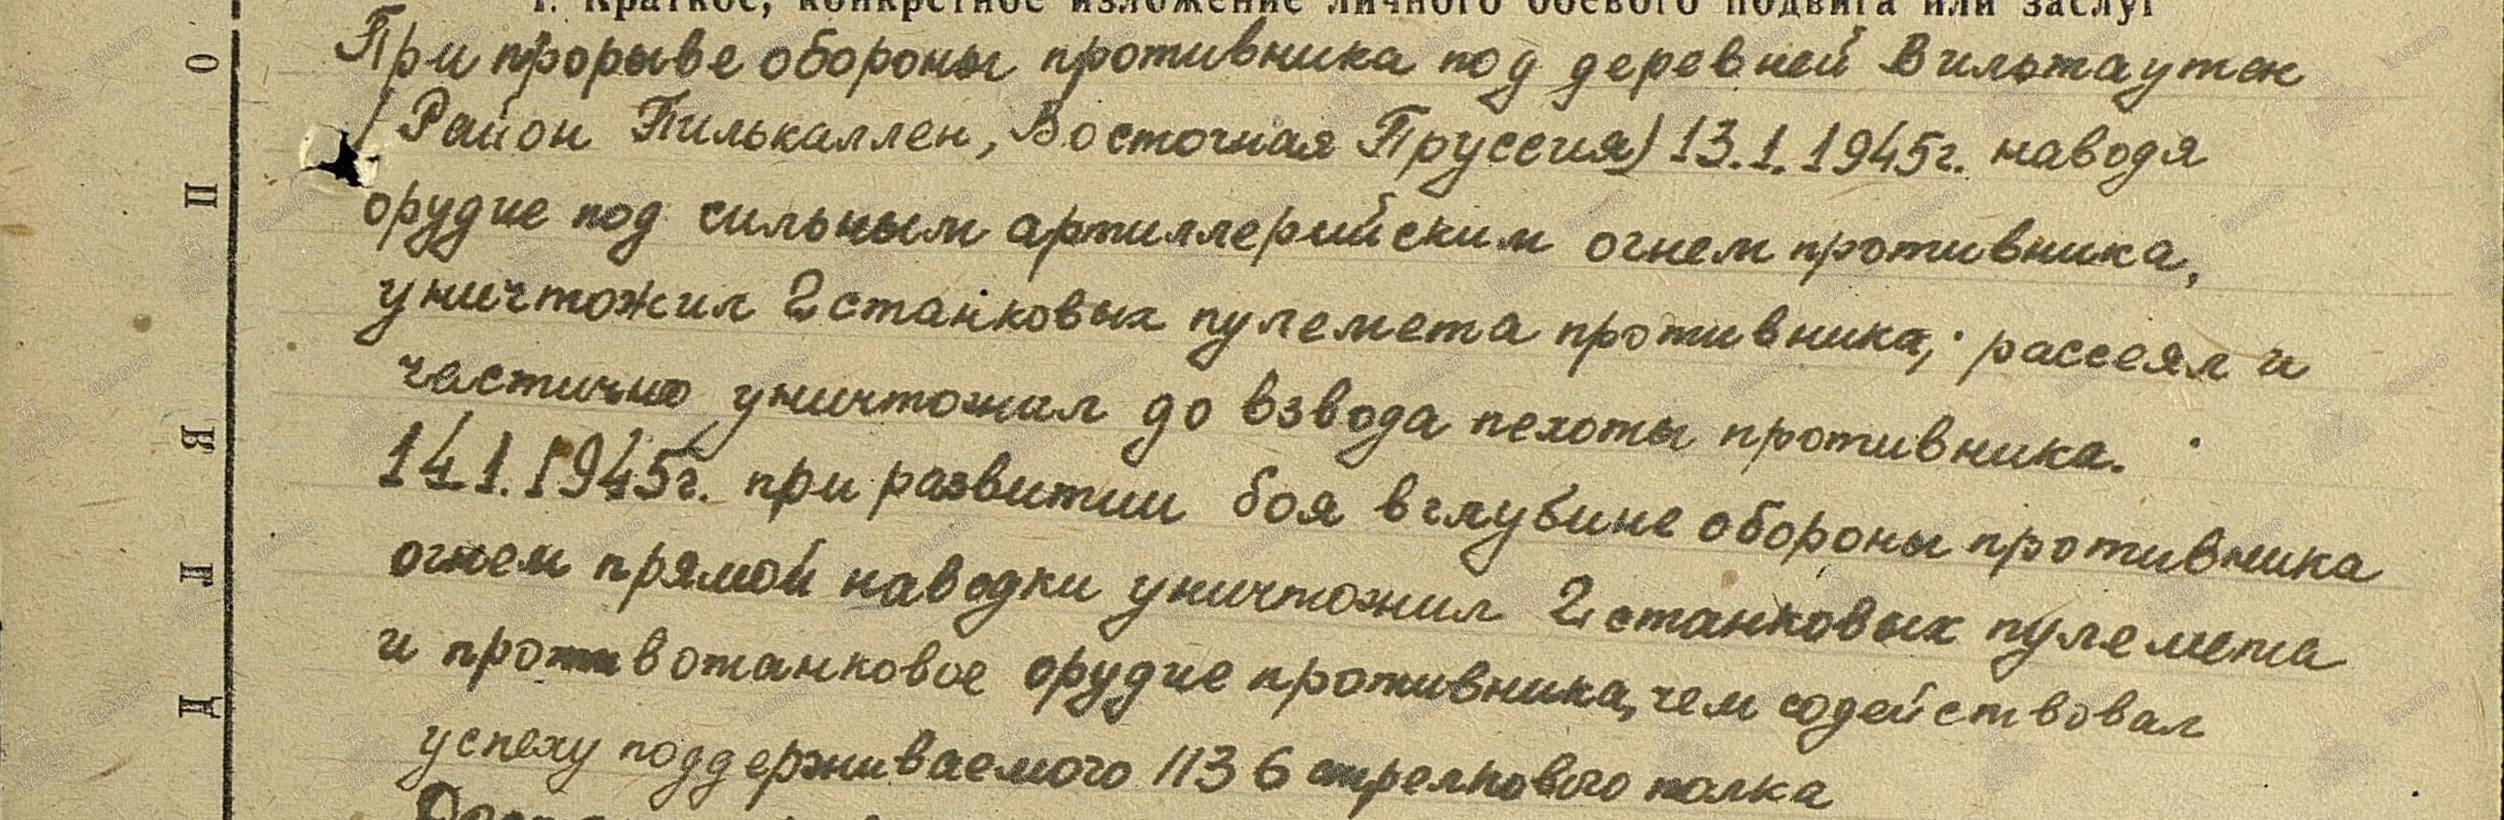 1. Краткое, конкретное изложение личного боевого подвига или заслуг
При прорыве обороны противника под деревней Вильтаутен
(Район Пилькаллен, Восточная Пруссия) 13.1.1945г. наводя
орудие под сильным артиллерийским огнем противника,
уничтожил 2 станковых пулемета противника, рассеял и
частично уничтожил до взвода пехоты противника.
14.1.1945г. при развитии боя в глубине обороны противника
огнем прямой наводки уничтожил 2 станковых пулемета
и противотанковое орудие противника, чем содействовал
успеху поддерживаемого 1136 стрелкового полка
О
П
В
Г
Д